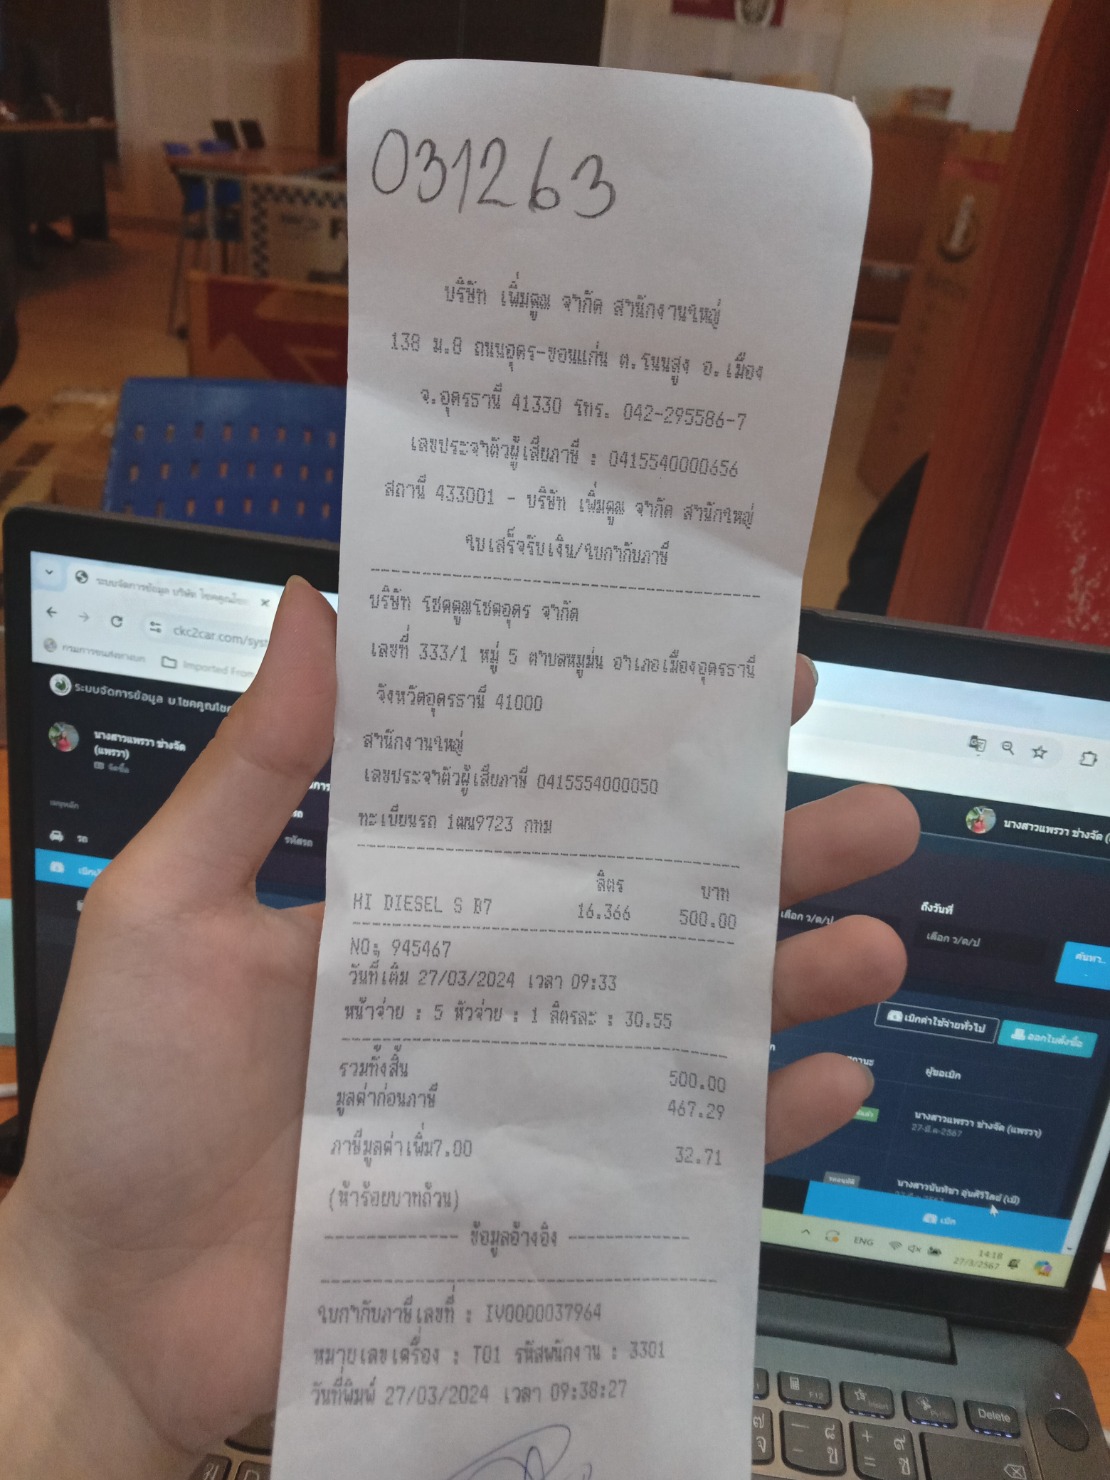 031263
บริษัท เพิ่มคูณ จำกัด สำนักงานใหญ่
138 ม.8 ถนนอุดร-ขอนแก่น ต.โนนสูง อ.เมือง
จ.อุดรธานี 41330 โทร. 042-295586-7
เลขประจำตัวผู้เสียภาษี : 0415540000656
สถานี 433001 - บริษัท เพิ่มคูณ จำกัด สำนักใหญ่
ใบเสร็จรับเงิน/ใบกำกับภาษี
บริษัท โชคคูณโชคอุดร จำกัด
เลขที่ 333/1 หมู่ 5 ตำบลหมูม่น อำเภอเมืองอุดรธานี
จังหวัดอุดรธานี 41000
สำนักงานใหญ่
เลขประจำตัวผู้เสียภาษี 0415554000050
ทะเบียนรถ 1ฒน9723 กทม
ลิตร บาท
HI DIESEL S B7 16.366 500.00
NO: 945467
วันที่เติม 27/03/2024 เวลา 09:33
หน้าจ่าย : 5 หัวจ่าย : 1 ลิตรละ : 30.55
รวมทั้งสิ้น 500.00
มูลค่าก่อนภาษี 467.29
ภาษีมูลค่าเพิ่ม7.00 32.71
(ห้าร้อยบาทถ้วน)
------------ ข้อมูลอ้างอิง ------------
ใบกำกับภาษีเลขที่ : IV0000037964
หมายเลขเครื่อง : T01 รหัสพนักงาน : 3301
วันที่พิมพ์ 27/03/2024 เวลา 09:38:27
ระบบจัดการข้อมูล บริษัท โชคคูณโชค
ckc2car.com/sys
กรมการขนส่งทางบก Imported From
ระบบจัดการข้อมูล บ.โชคคูณโชค
นางสาวแพรวา ช่างจัด
(แพรวา)
จัดซื้อ
เมนูหลัก
รถ
รหัสรถ
นางสาวแพรวา ช่างจัด
ถึงวันที่
เลือก ว/ด/ป
เลือก ว/ด/ป
ค้นหา..
เบิกค่าใช้จ่ายทั่วไป
ออกใบสั่งซื้อ
ผู้ขอเบิก
นางสาวแพรวา ช่างจัด (แพรวา)
27-มี.ค-2567
นางสาวนันทิชา อุ่นศิริไลย์ (เม้)
เบิก
ENG
14:18
27/3/2567
F12
Insert
PrtSc
Delete